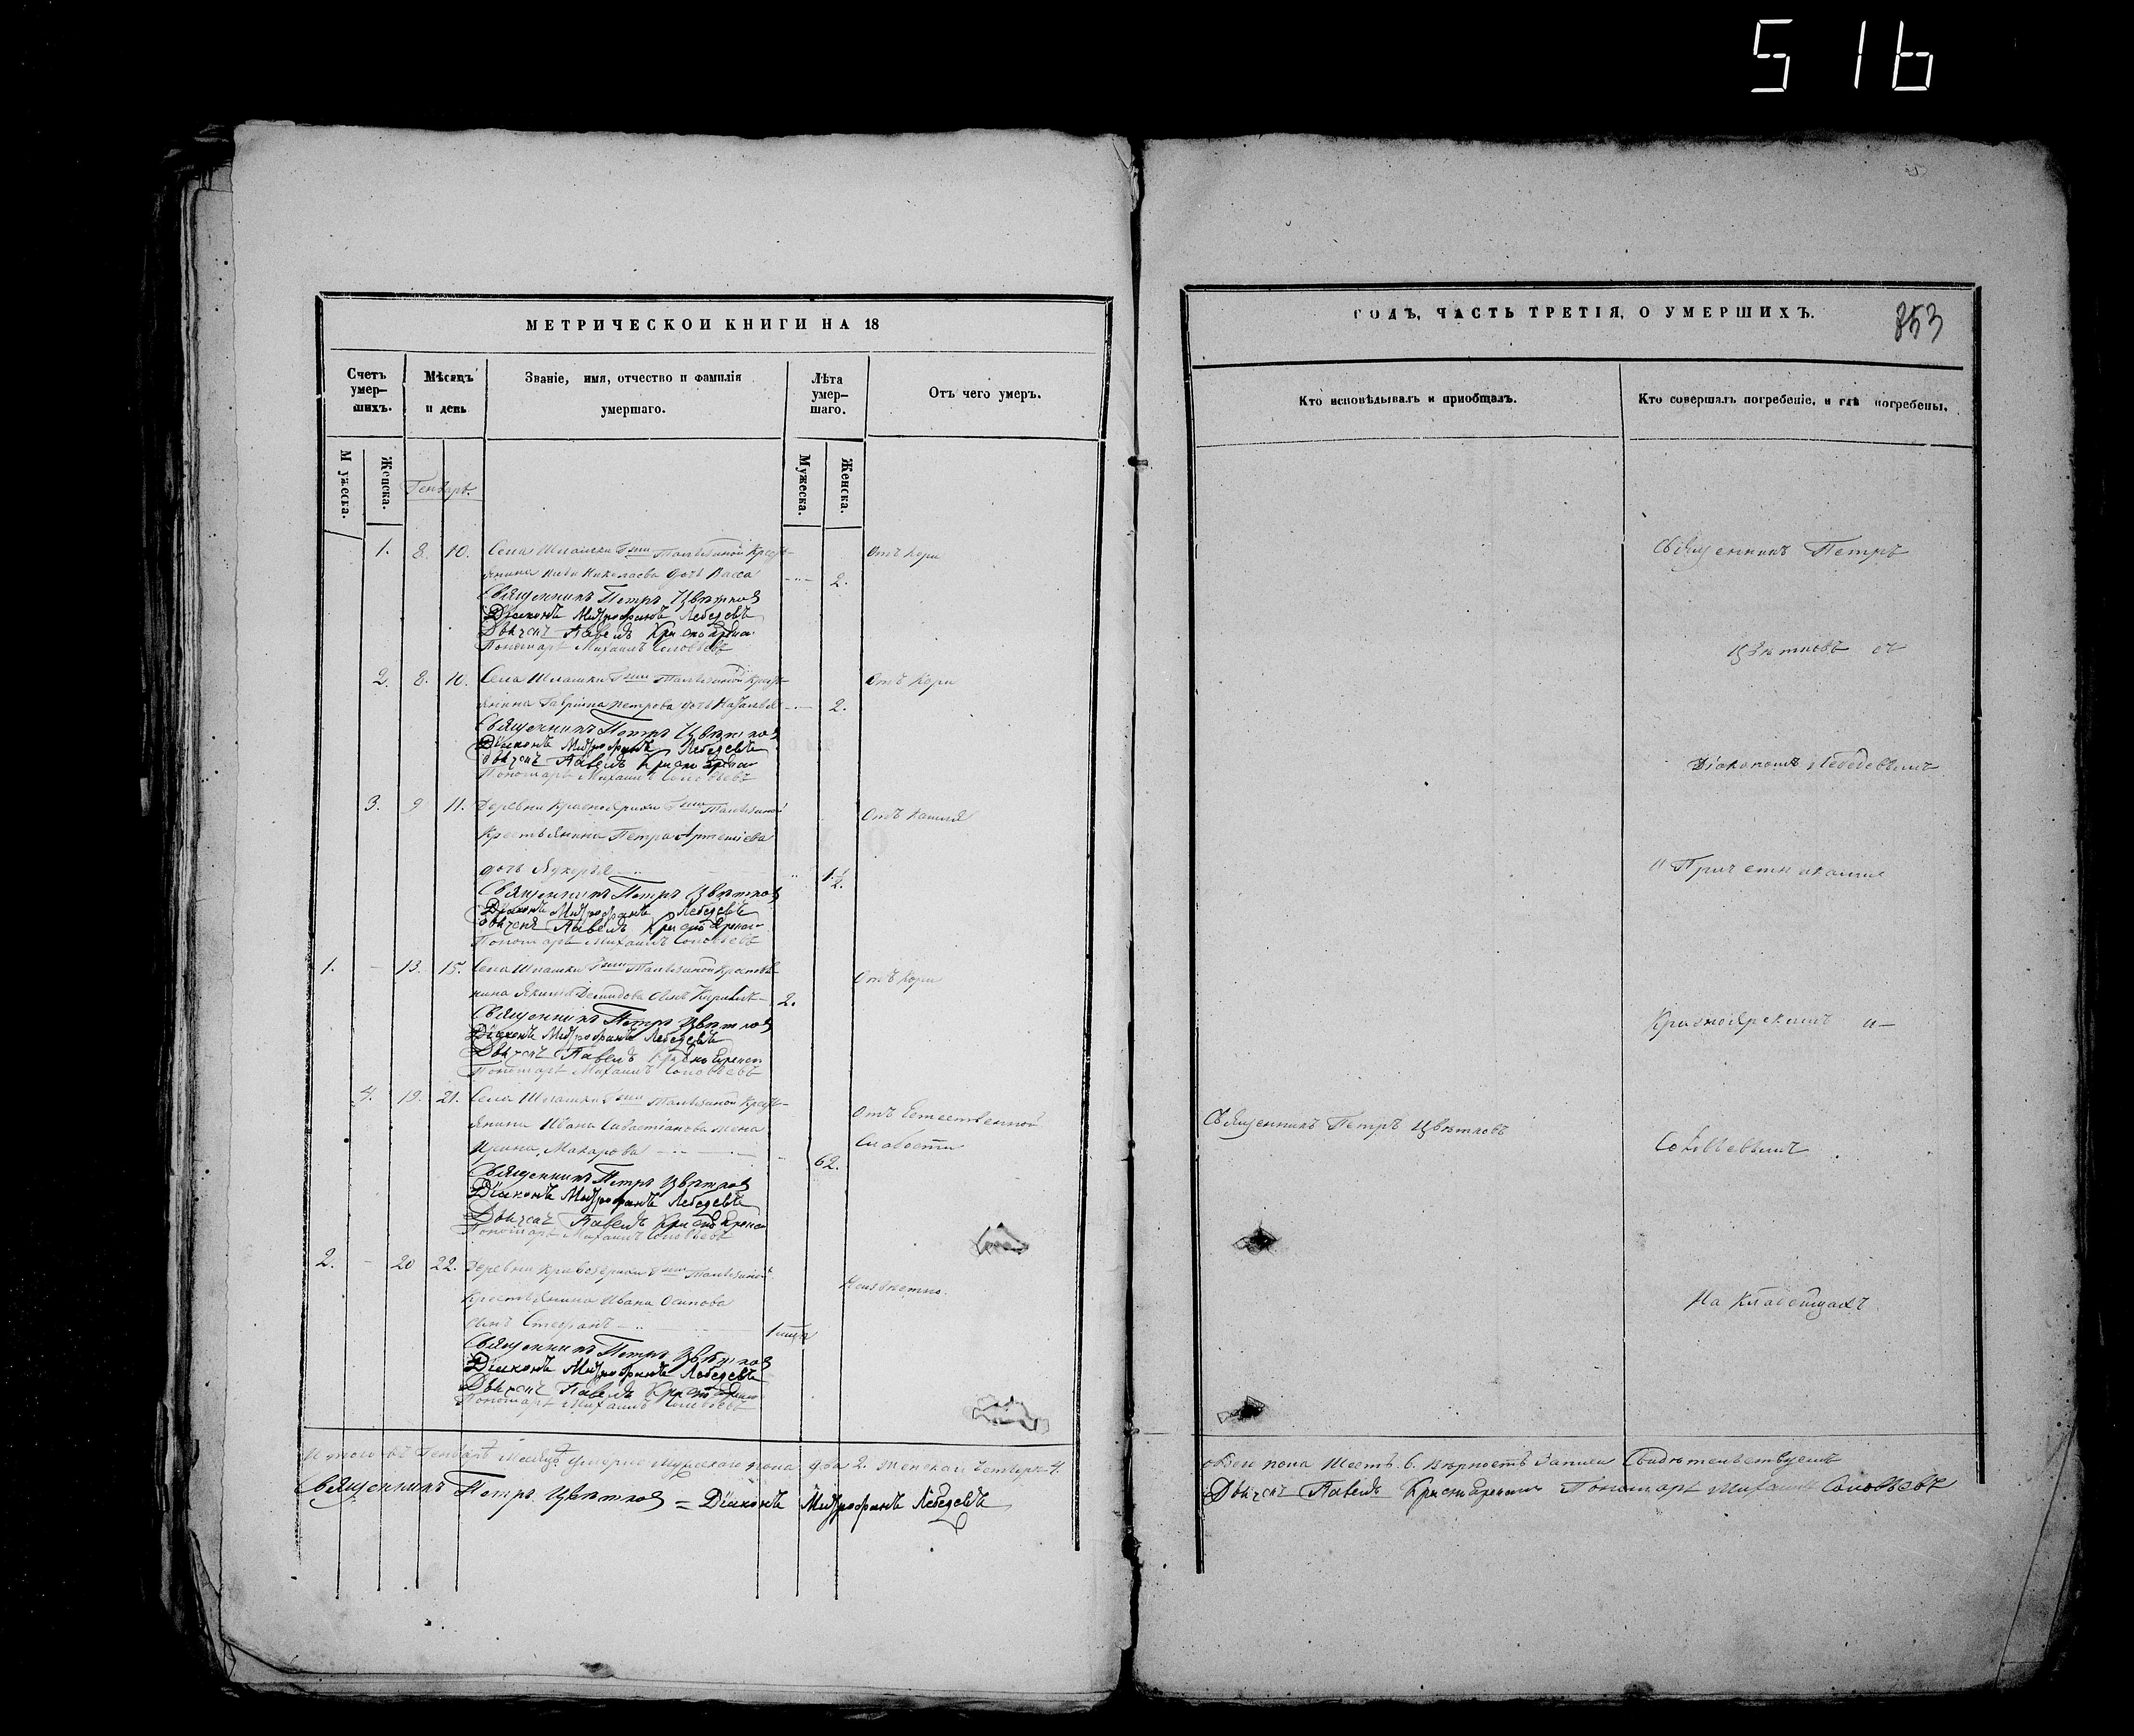 516
МЕТРИЧЕСКОИ КНИГИ НА 18
Счетъ умер-
шихъ.
Мѣсяцъ
и день
Званіе, имя, отчество и фамилія
умершаго.
Лѣта
умер-
шаго.
Отъ чего умеръ.
Мужеска.
Женска.
Генварь.
Мужеска.
Женска.
1. 8. 10. Села Шпашки Талызиной Кресть-
янина Николаева дочь Васса 2. Отъ Кори
Священникъ Петръ Цвѣтковъ
Діаконъ Митрофанъ Лебедевъ
Дьячекъ Павелъ
Пономарь Михаилъ Соловьевъ
2. 8. 10. Села Шпашки Талызиной Кресть-
янина Гавріила Петрова дочь Наталья 2. Отъ Кори
Священникъ Петръ Цвѣтковъ
Діаконъ Митрофанъ Лебедевъ
Дьячекъ Павелъ
Пономарь Михаилъ Соловьевъ
3. 9 11. Деревни Талызиной
Крестьянина Петра Артемьева Отъ Кашля
дочь Лукерья 1 1/2.
Священникъ Петръ Цвѣтковъ
Діаконъ Митрофанъ Лебедевъ
Дьячекъ Павелъ
Пономарь Михаилъ Соловьевъ
1. - 13. 15. Села Шпашки Талызиной Крестья-
нина Якима Демидова сынъ 2. Отъ Кори
Священникъ Петръ Цвѣтковъ
Діаконъ Митрофанъ Лебедевъ
Дьячекъ Павелъ
Пономарь Михаилъ Соловьевъ
4. 19. 21. Села Шпашки Талызиной Кресть-
янина Ивана Савастіанова жена Отъ Естественной
Ирина Макарова 62. Слабости
Священникъ Петръ Цвѣтковъ
Діаконъ Митрофанъ Лебедевъ
Дьячекъ Павелъ
Пономарь Михаилъ Соловьевъ
2. - 20 22. Деревни Талызиной
Крестьянина Ивана Осипова Неизвѣстно.
сынъ Стефанъ
Священникъ Петръ Цвѣтковъ
Діаконъ Митрофанъ Лебедевъ
Дьячекъ Павелъ
Пономарь Михаилъ Соловьевъ
Итого въ Генварѣ Месяцѣ умерло мужескаго пола два 2. женскаго четыре 4.
Священникъ Петръ Цвѣтковъ = Діаконъ Митрофанъ Лебедевъ
ГОДЪ, ЧАСТЬ ТРЕТІЯ, О УМЕРШИХЪ.
353
Кто исповѣдывалъ и пріобщалъ.
Кто совершалъ погребеніе, и гдѣ погребены.
Священникъ Петръ
Цвѣтковъ съ
Діакономъ Лебедевымъ
и Причетниками
Красноярскимъ и-
Священникъ Петръ Цвѣтковъ
Соловьевымъ
На Кладбищахъ
обоего пола Шесть. 6. вѣрность Записи Свидѣтельствуемъ
Дьячекъ Павелъ Пономарь Михаилъ Соловьевъ